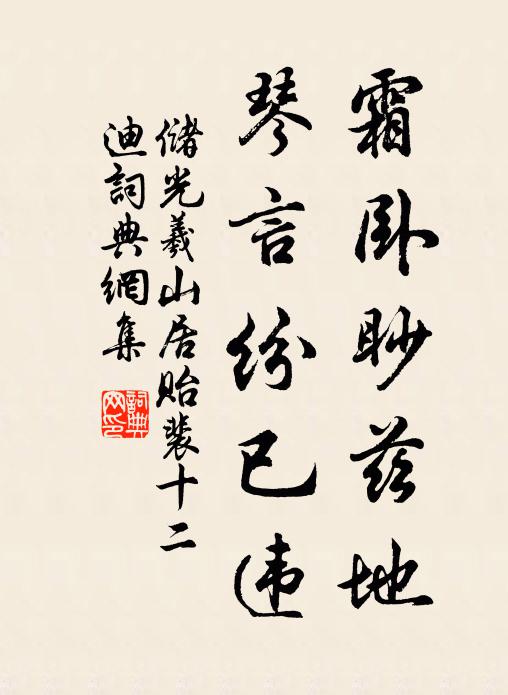 霜卧眇兹地
琴言纷已违
储光羲山居贻裴十二
迪词典网集
词典
网印